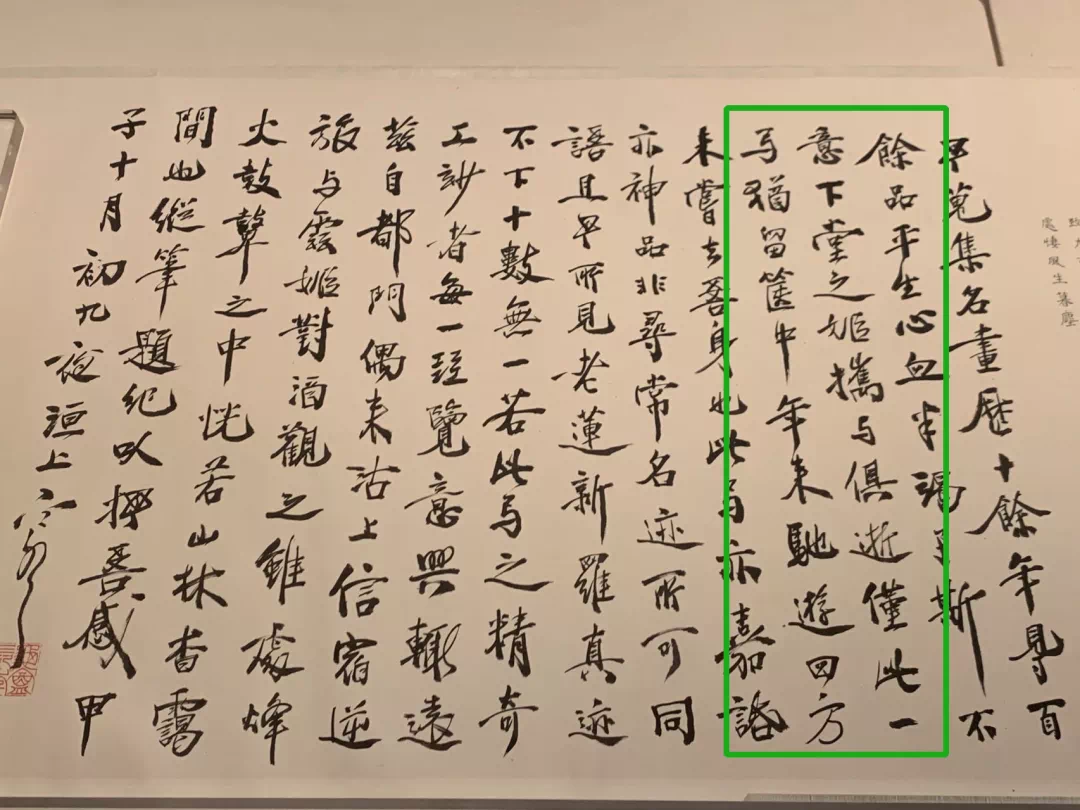 處悽風生集塵
早蒐集名畫歷十餘年得百
餘品平生心血半竭于斯不
意下堂之姬攜与俱逝僅此一
馬猶留篋中年来馳遊四方
未嘗去吾身也此馬亦嘉話
亦神品非尋常名迹所可同
語且早所見老蓮新羅真迹
不下十數無一若此馬之精奇
工妙者每一經覽意興輒遠
玆自都門偶来沽上信宿逆
旅与霞姬對酒觀之雖處烽
火鼓鼙之中恍若山林杳靄
間也縱筆題紀以抒吾感甲
子十月初九夜洹上寒雲